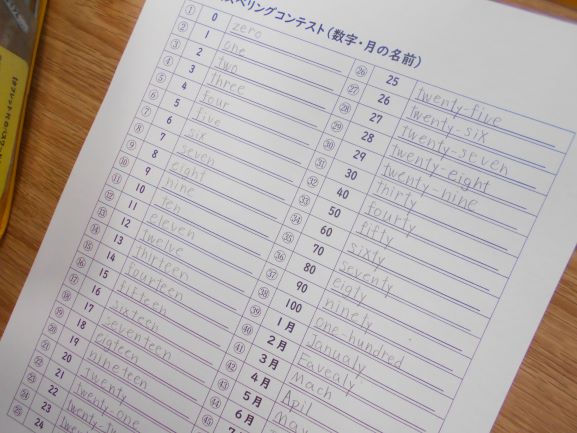 スペリングコンテスト(数字・月の名前)
① 0 zero
② 1 one
③ 2 two
④ 3 three
⑤ 4 four
⑥ 5 five
⑦ 6 six
⑧ 7 seven
⑨ 8 eight
⑩ 9 nine
⑪ 10 ten
⑫ 11 eleven
⑬ 12 twelve
⑭ 13 thirteen
⑮ 14 fourteen
⑯ 15 fifteen
⑰ 16 sixteen
⑱ 17 seventeen
⑲ 18 eigteen
⑳ 19 nineteen
㉑ 20 twenty
㉒ 21 twenty-one
㉓ 22
㉔ 23
㉕ 24
㉖ 25 twenty-five
㉗ 26 twenty-six
㉘ 27 twenty-seven
㉙ 28 twenty-eight
㉚ 29 twenty-nine
㉛ 30 thirty
㉜ 40 fourty
㉝ 50 fifty
㉞ 60 sixty
㉟ 70 seventy
㊱ 80 eigty
㊲ 90 ninety
㊳ 100 one-hundred
㊴ 1月 Janualy
㊵ 2月 Favealy
㊶ 3月 Mach
㊷ 4月 Apil
㊸ 5月 May
㊹ 6月
㊺